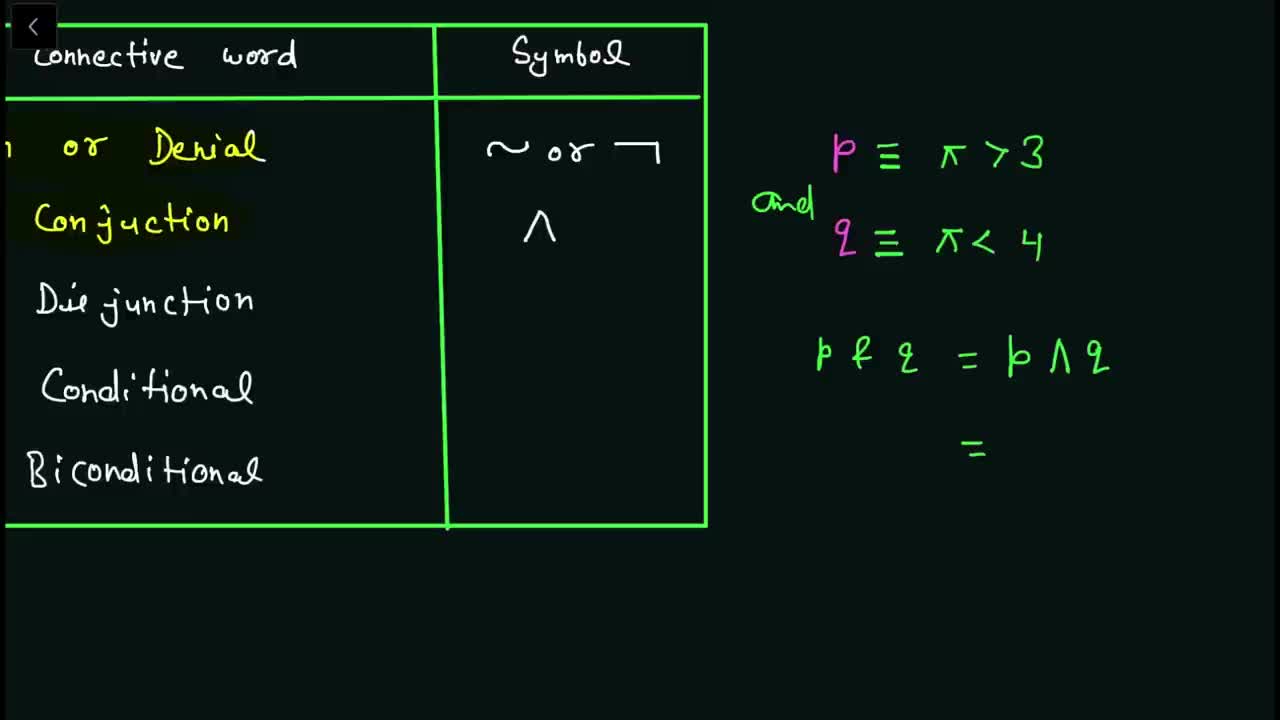 Connective word Symbol
n or Denial ~ or ¬
Conjuction ∧
Disjunction
Conditional
Biconditional
p ≡ π > 3
and
q ≡ π < 4
p & q = p ∧ q
=